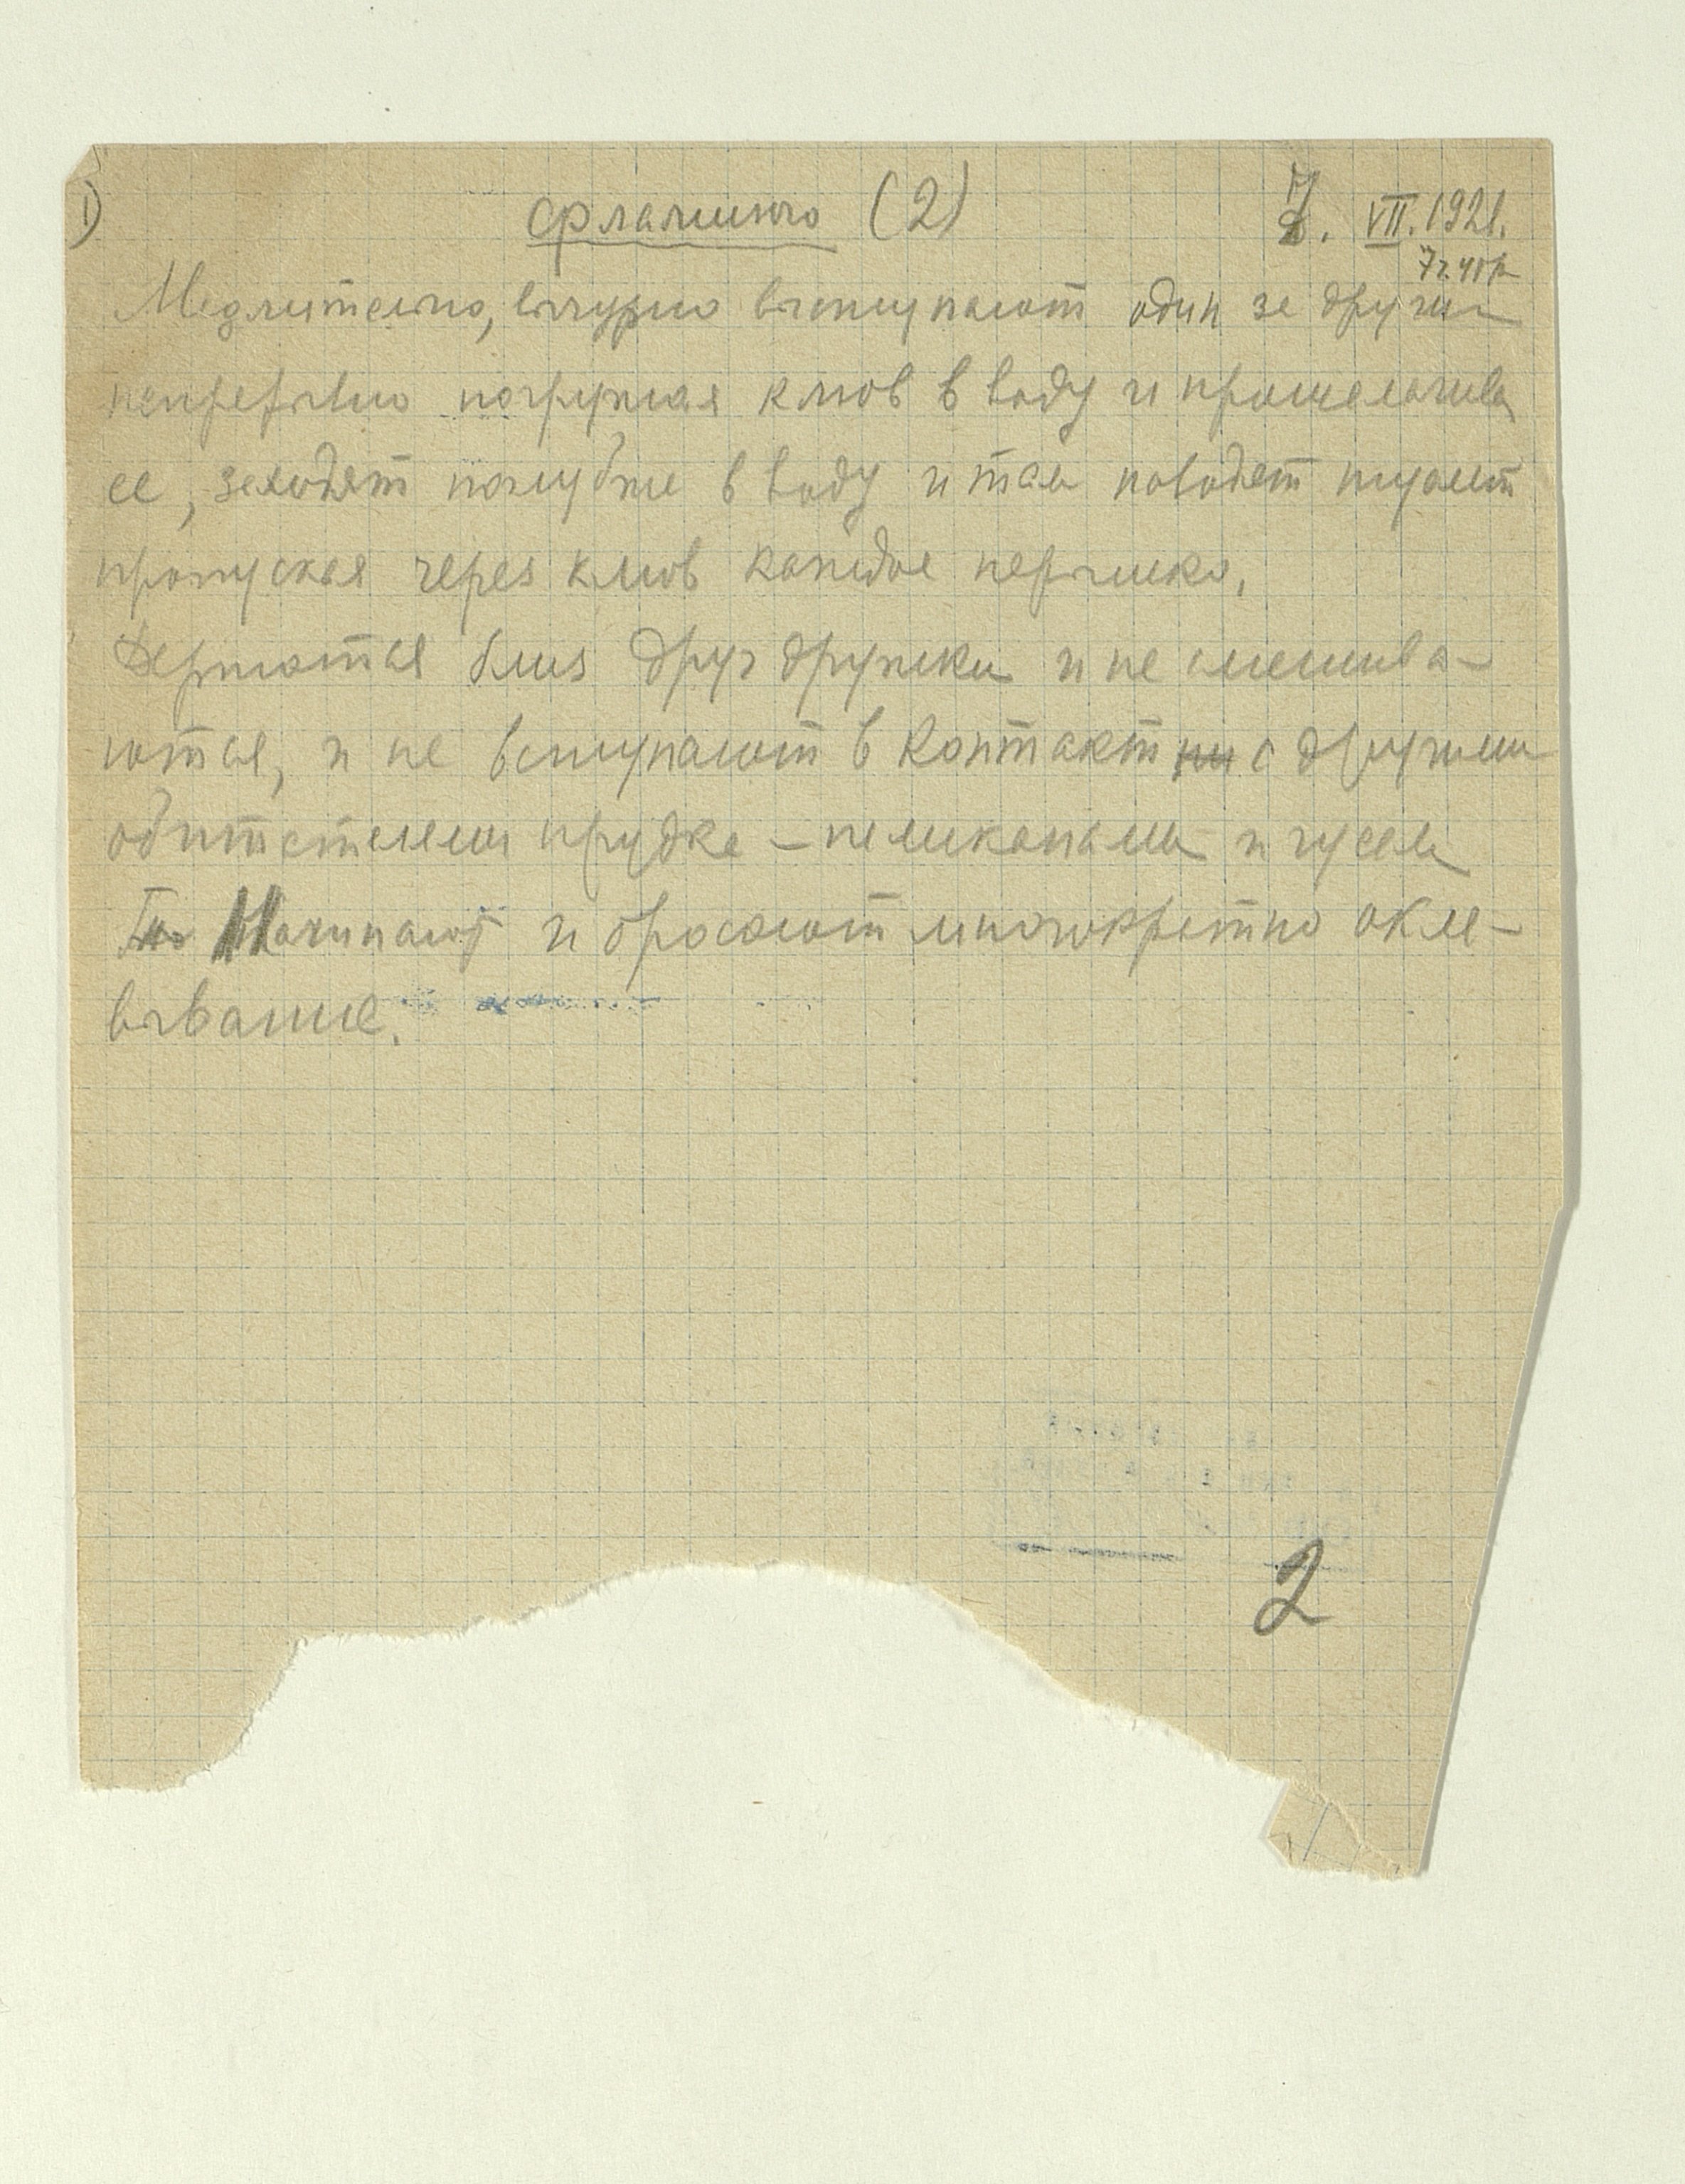 1) Фламинго (2) 7. VII. 1921.
7 ч. 40 м
Медлительно, выступают один за другим
непрерывно погружая клюв в воду и прощелачивая
ее, заходят поглубже в воду и там поводят
пропуская через клюв каждое перышко.
Держатся близ друг дружки и не смешива-
ются, и не вступают в контакт ни с другими
обитателями прудка – пеликанами и гусями
Начинают и бросают многократно окле-
вывание.
2